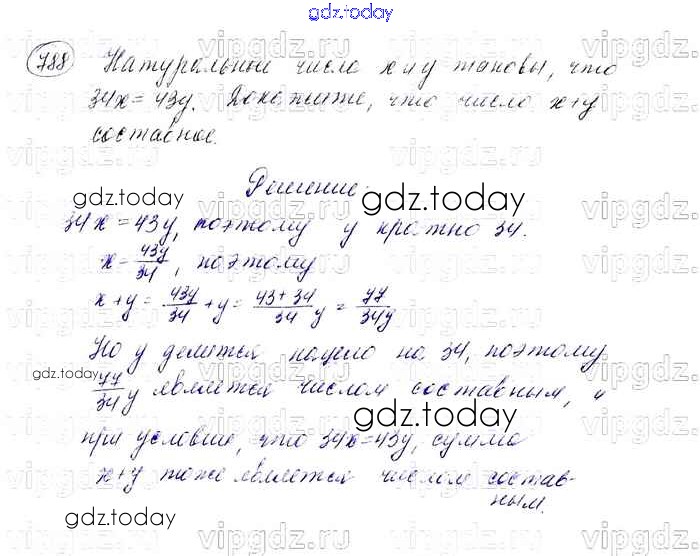 gdz.today
788 Натуральные число x и y таковы, что
34x = 43y. Докажите, что число x+y
составное.
Решение:
34x = 43y, поэтому y кратно 34.
x = 43y/34, поэтому
x + y = 43y/34 + y = (43 + 34)/34 y = 77/34y
Но y делится нацело на 34, поэтому
77/34 y является числом составным, и
при условие, что 34x=43y, сумма
x+y тоже является числом состав-
ным.
gdz.today
gdz.today
gdz.today
gdz.today
gdz.today
vipgdz.ru